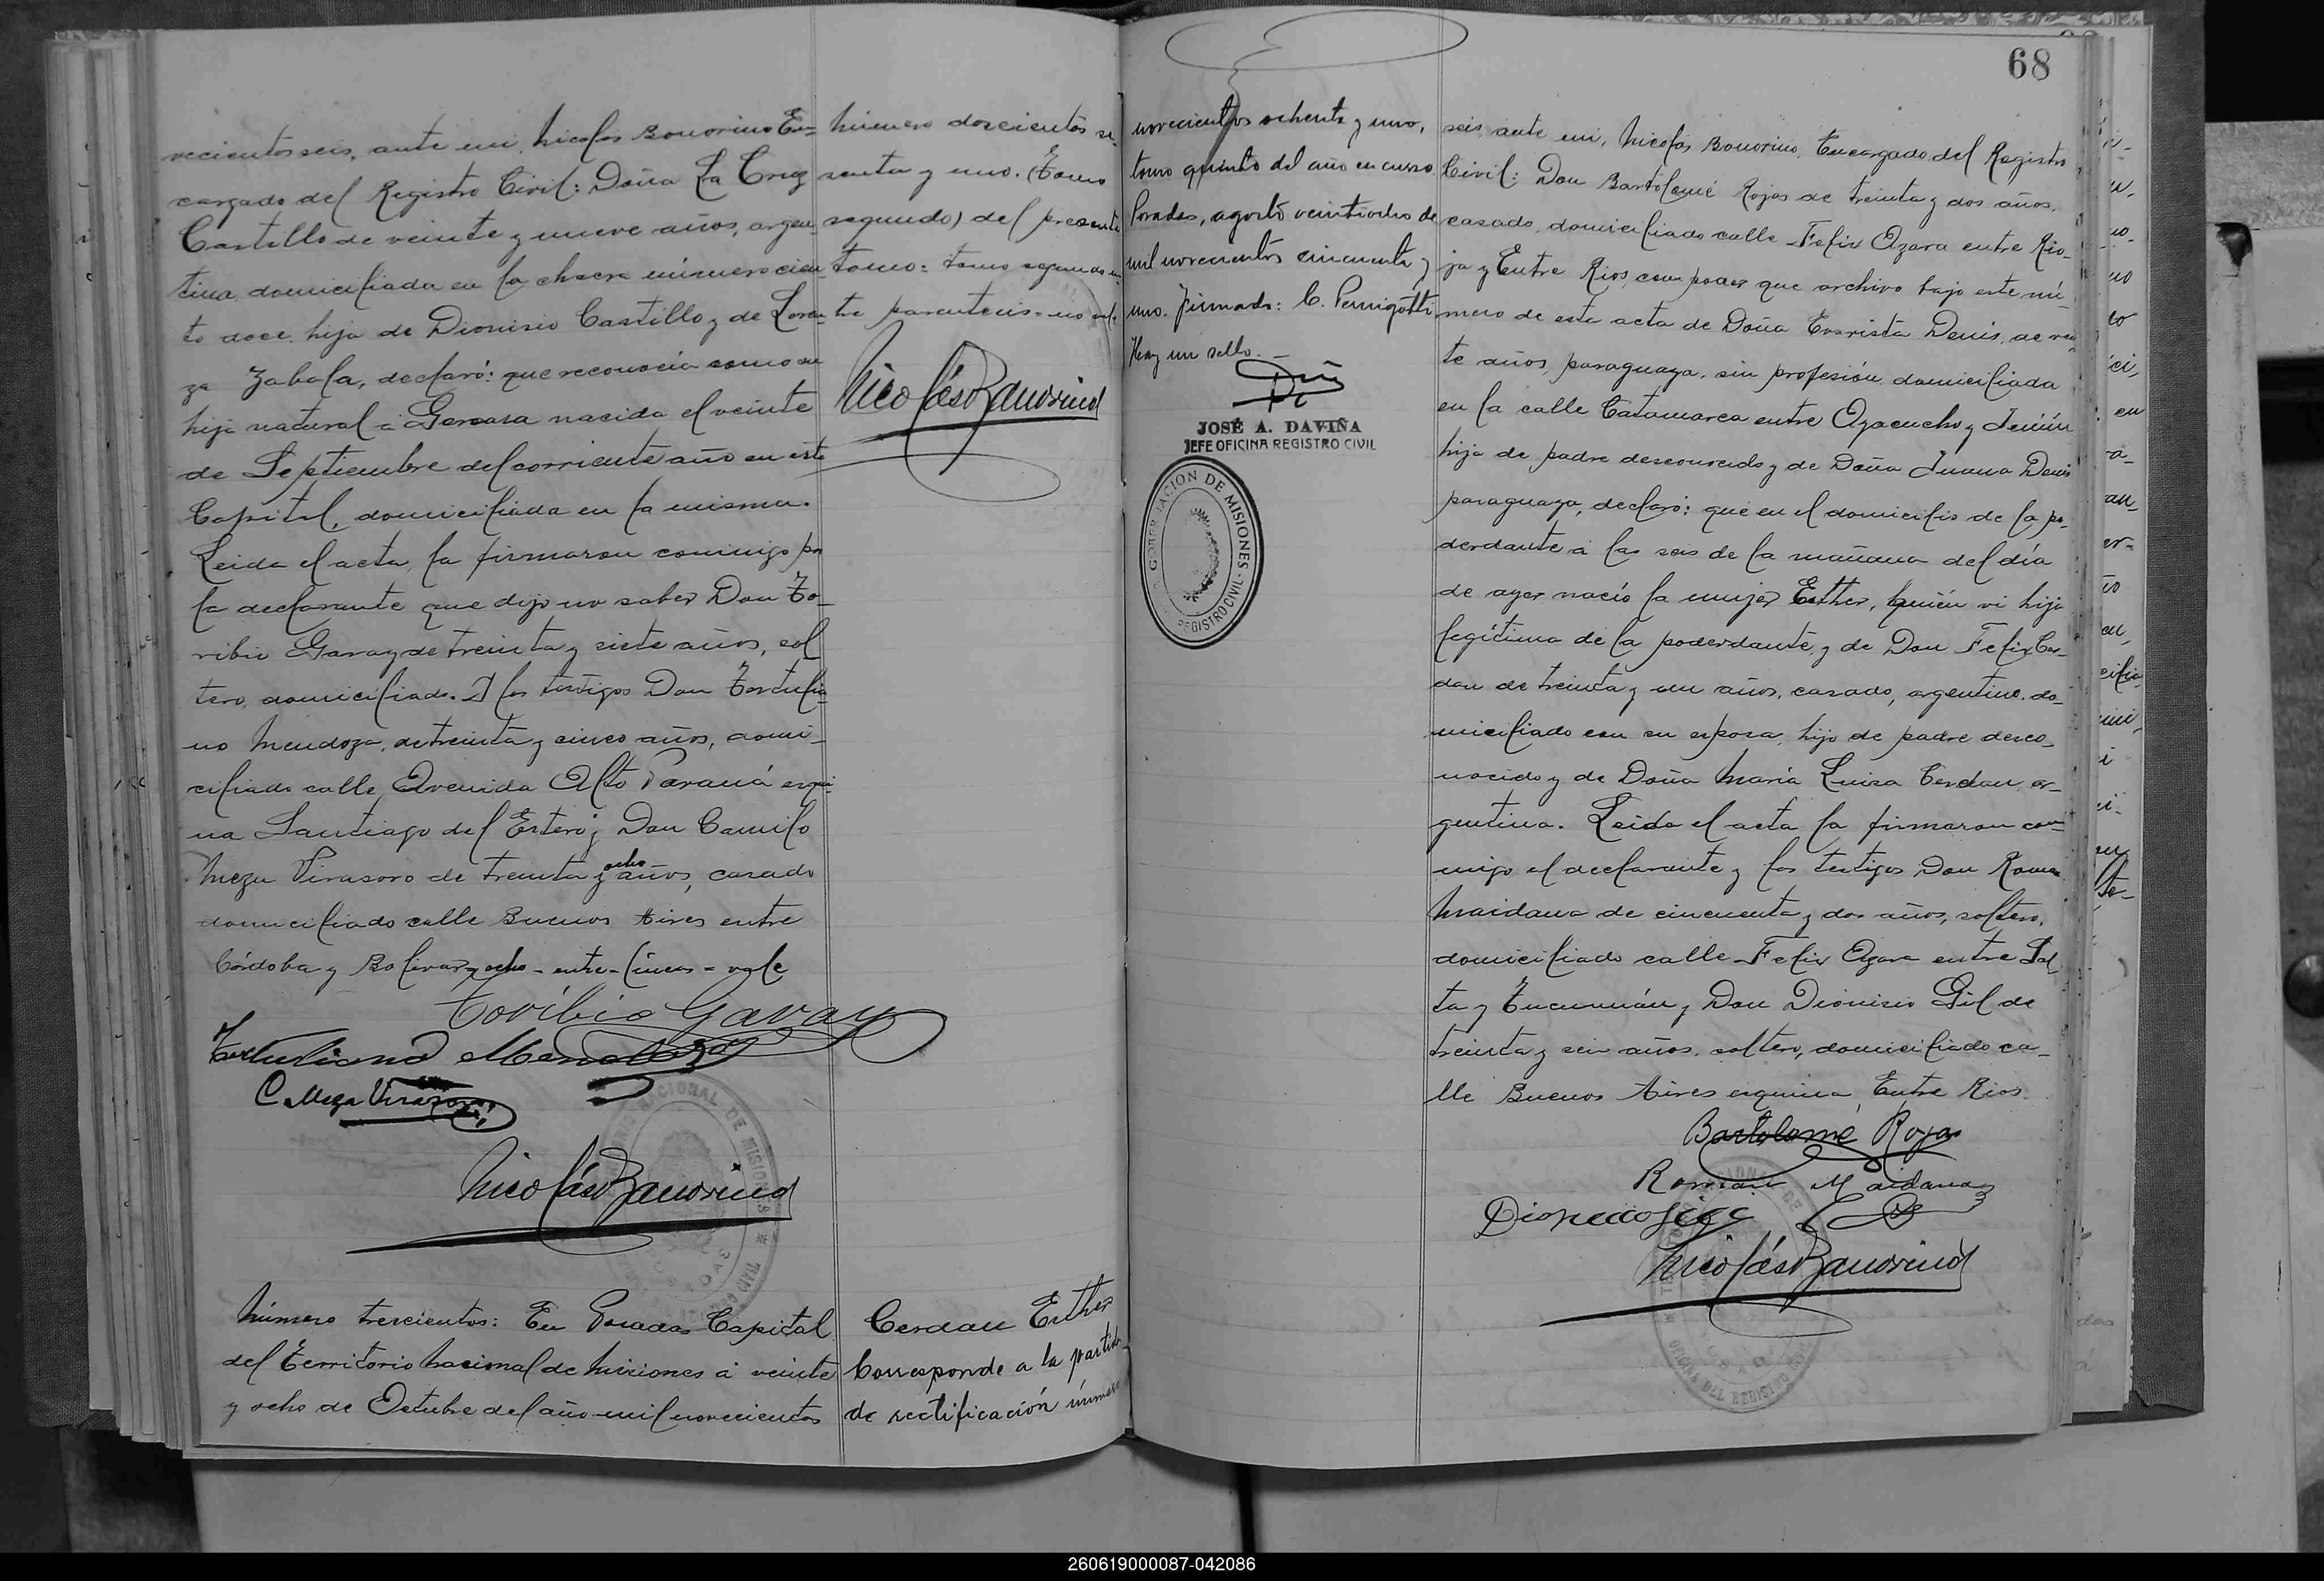 vecientos seis, ante mi, Nicolás Bonorino En-
cargado del Registro Civil: Doña La Cruz
Castillo de veinte y nueve años, argen-
tina domiciliada en la chacra número cien-
to doce, hija de Dionisio Castillo y de Loren-
za Zabala, declaró: que reconocía como su
hija natural á Gervasa nacida el veinte
de Septiembre del corriente año en esta
Capital, domiciliada en la misma.
Leida el acta, la firmaron conmigo por
la declarante que dijo no saber Don To-
ribio Garay de treinta y siete años, sol
tero, domiciliado. Y los testigos Don Tertulia-
no Mendoza, de treinta y cinco años, domi-
ciliado calle Avenida Alto Paraná esqui
na Santiago del Estero y Don Camilo
Meza Virasoro de treinta y ocho años, casado
domiciliado calle Buenos Aires entre
Córdoba y Bolivar y ocho - entre - lineas = vale
Toribio Garay
Tertuliano Mendoza
C. Meza Virasoro
Nicolás Bonorino
Número trescientos: En Posadas Capital
del Territorio Nacional de Misiones á veinte
y ocho de Octubre del año mil novecientos
número doscientos se-
senta y uno. (Tomo
segundo) del presente
tomo = tomo segundo en-
tre parentesis = no vale
Nicolás Bonorino
Cerdan Esther
Corresponde a la partida
de rectificación número
novecientos ochenta y uno,
tomo quinto del año en curso
Posadas, agosto veintiocho de
mil novecientos cincuenta y
uno. Firmado: C. Pernigotti
Hay un sello. -
JOSÉ A. DAVIÑA
JEFE OFICINA REGISTRO CIVIL
GOBERNACION DE MISIONES
REGISTRO CIVIL
68
seis, ante mi, Nicolás Bonorino, Encargado del Registro
Civil: Don Bartolomé Rojas de treinta y dos años,
casado, domiciliado calle Felix Azara entre Rio-
ja y Entre Rios, con poder que archivo bajo este nú-
mero de este acta de Doña Evarista Denis, de vein
te años, paraguaya, sin profesión, domiciliada
en la calle Catamarca entre Ayacucho y Junín
hija de padre desconocido y de Doña Juana Denis
paraguaya, declaró: que en el domicilio de la po-
derdante á las seis de la mañana del día
de ayer nació la mujer Esther, quién vi hija
legítima de la poderdante y de Don Felix Cer-
dan de treinta y un años, casado, argentino, do-
miciliado con su esposa, hijo de padre desco-
nocido y de Doña María Luisa Cerdan, ar-
gentina. Leida el acta la firmaron con-
migo el declarante y los testigos Don Roman
Maidana de cincuenta y dos años, soltero,
domiciliado calle Felix Azara entre Sal
ta y Tucumán y Don Dionisio Gil de
treinta y seis años, soltero, domiciliado ca-
lle Buenos Aires esquina Entre Rios.
Bartolomé Rojas
Roman Maidana
Dionicio Gil
Nicolás Bonorino
260619000087-042086